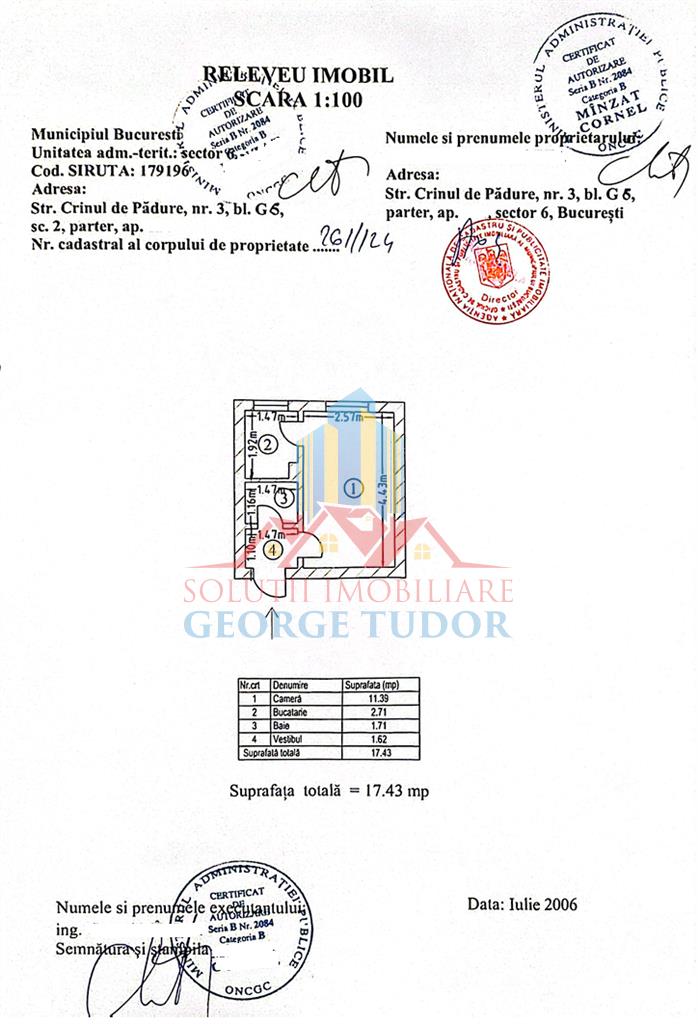 RELEVEU IMOBIL
SCARA 1:100
Municipiul Bucuresti
Unitatea adm.-terit.: sector 6,
Cod. SIRUTA: 179196
Adresa:
Str. Crinul de Pădure, nr. 3, bl. G6,
sc. 2, parter, ap.
Nr. cadastral al corpului de proprietate ....... 261/124
Numele si prenumele proprietarului:
Adresa:
Str. Crinul de Pădure, nr. 3, bl. G6,
parter, ap. , sector 6, București
MINISTERUL ADMINISTRAȚIEI PUBLICE
CERTIFICAT
DE
AUTORIZARE
Seria B Nr. 2084
Categoria B
MÎNZAT
CORNEL
ONCGC
CERTIFICAT
DE
AUTORIZARE
Seria B Nr. 2084
Categoria B
ONCGC
AGENȚIA NAȚIONALĂ DE CADASTRU ȘI PUBLICITATE IMOBILIARĂ
Director
1.47m
2.57m
1.92m
2
1
4.43m
1.47m
3
1.16m
1.47m
1.10m
4
SOLUTII IMOBILIARE
GEORGE TUDOR
Nr.crt Denumire Suprafata (mp)
1 Cameră 11.39
2 Bucatarie 2.71
3 Baie 1.71
4 Vestibul 1.62
Suprafată totală 17.43
Suprafața totală = 17.43 mp
Numele si prenumele executantului
ing.
Semnătura și ștampila
MINISTERUL ADMINISTRAȚIEI PUBLICE
CERTIFICAT
DE
AUTORIZARE
Seria B Nr. 2084
Categoria B
ONCGC
Data: Iulie 2006